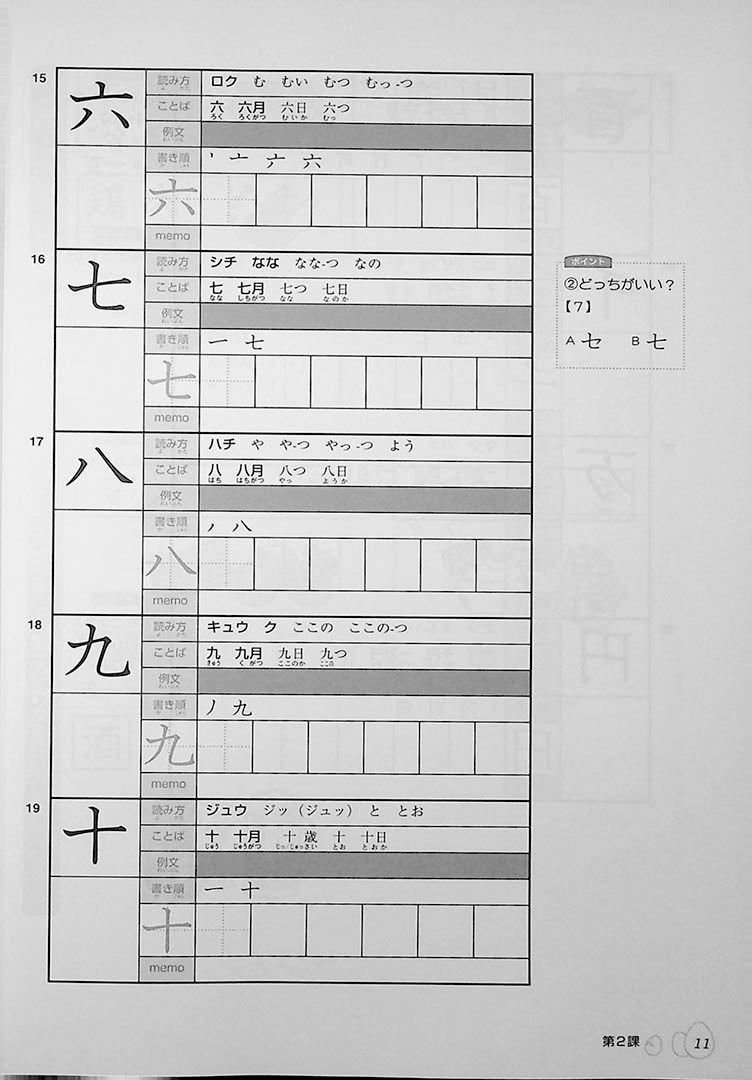 15
六
読み方 ロク む むい むつ むっ-つ
よ かた
ことば 六 六月 六日 六つ
ろく ろくがつ むいか むっ
例文
れいぶん
書き順 丶 亠 六 六
か じゅん
六
memo
16
七
読み方 シチ なな なな-つ なの
よ かた
ことば 七 七月 七つ 七日
なな しちがつ なな なのか
例文
れいぶん
書き順 一 七
か じゅん
七
memo
17
八
読み方 ハチ や や-つ やっ-つ よう
よ かた
ことば 八 八月 八つ 八日
はち はちがつ やっ ようか
例文
れいぶん
書き順 ノ 八
か じゅん
八
memo
18
九
読み方 キュウ ク ここの ここの-つ
よ かた
ことば 九 九月 九日 九つ
きゅう くがつ ここのか ここの
例文
れいぶん
書き順 ノ 九
か じゅん
九
memo
19
十
読み方 ジュウ ジッ（ジュッ） と とお
よ かた
ことば 十 十月 十歳 十 十日
じゅう じゅうがつ じっ/じゅっさい とお とおか
例文
れいぶん
書き順 一 十
か じゅん
十
memo
ポイント
②どっちがいい？
【7】
A 七 B 七
第2課 11